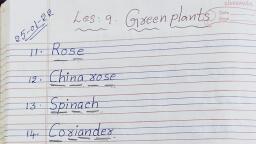 25-01-22
Les: 9. Green plants
11. Rose
12. China rose
13. Spinach
14. Coriander